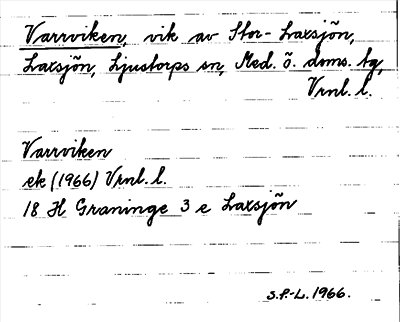 Varrviken, vik av Stor-Laxsjön,
Laxsjön, Ljustorps sn, Med. ö. doms. tg,
Vrnl. l.
Varrviken
ek (1966) Vrnl. l.
18 H Graninge 3 e Laxsjön
S.P.-L. 1966.